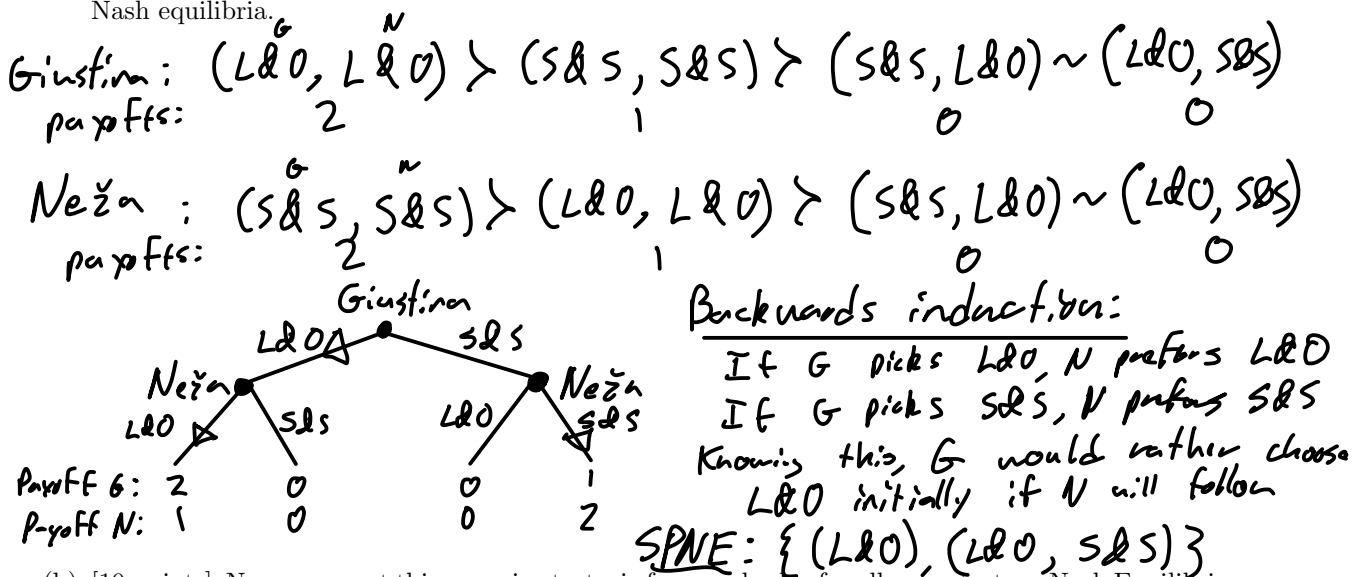 Nash equilibria.
G N
Giustina: (L&O, L&O) > (S&S, S&S) > (S&S, L&O) ~ (L&O, S&S)
payoffs: 2 1 0 0
G N
Neža: (S&S, S&S) > (L&O, L&O) > (S&S, L&O) ~ (L&O, S&S)
payoffs: 2 1 0 0
Giustina
L&O S&S
Neža Neža
L&O S&S L&O S&S
Payoff G: 2 0 0 1
Payoff N: 1 0 0 2
Backwards induction:
If G picks L&O, N prefers L&O
If G picks S&S, N prefers S&S
Knowing this, G would rather choose
L&O initially if N will follow
SPNE: {(L&O), (L&O, S&S)}